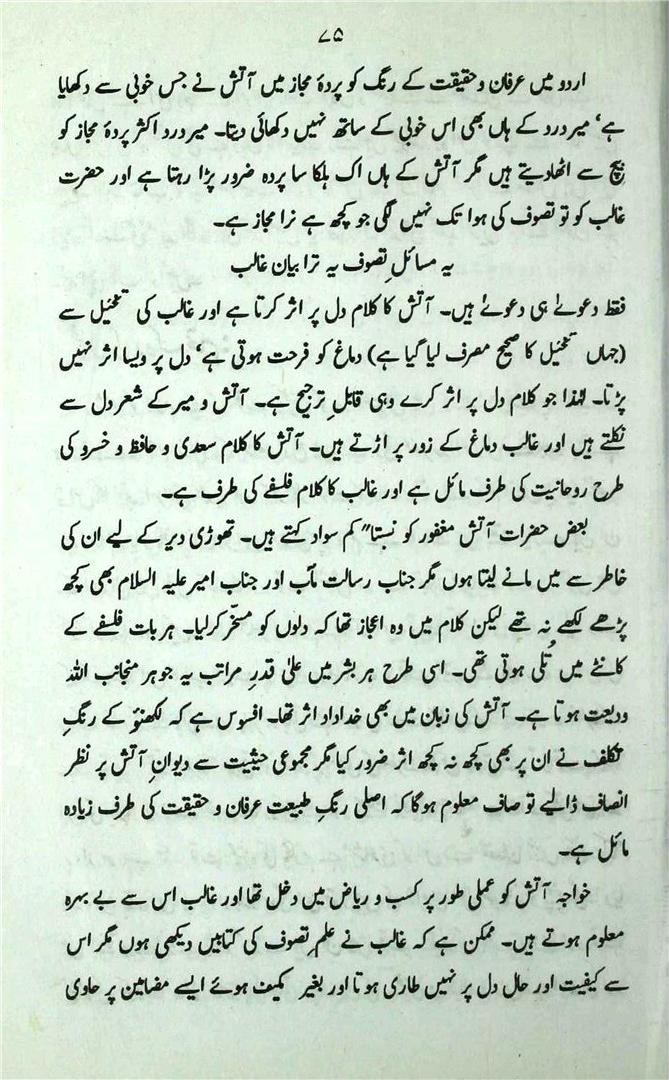 ۷۵
اردو میں عرفان و حقیقت کے رنگ کو پردۂ مجاز میں آتش نے جس خوبی سے دکھایا
ہے، میر درد کے ہاں بھی اس خوبی کے ساتھ نہیں دکھائی دیتا۔ میر درد اکثر پردۂ مجاز کو
بیچ سے اٹھادیتے ہیں مگر آتش کے ہاں اک ہلکا سا پردہ ضرور پڑا رہتا ہے اور حضرت
غالب کو تو تصوف کی ہوا تک نہیں لگی جو کچھ ہے نرا مجاز ہے۔
یہ مسائلِ تصوف یہ ترا بیان غالب
فقط دعوےٰ ہی دعوےٰ ہیں۔ آتش کا کلام دل پر اثر کرتا ہے اور غالب کی تخئیل سے
(جہاں تخئیل کا صحیح مصرف لیا گیا ہے) دماغ کو فرحت ہوتی ہے، دل پر ویسا اثر نہیں
پڑتا۔ لہٰذا جو کلام دل پر اثر کرے وہی قابلِ ترجیح ہے۔ آتش و میر کے شعر دل سے
نکلتے ہیں اور غالب دماغ کے زور پر اڑتے ہیں۔ آتش کا کلام سعدی و حافظ و خسرو کی
طرح روحانیت کی طرف مائل ہے اور غالب کا کلام فلسفے کی طرف ہے۔
بعض حضرات آتش مغفور کو نسبتا" کم سواد کہتے ہیں۔ تھوڑی دیر کے لیے ان کی
خاطر سے میں مانے لیتا ہوں مگر جناب رسالت مآب اور جناب امیر علیہ السلام بھی کچھ
پڑھے لکھے نہ تھے لیکن کلام میں وہ اعجاز تھا کہ دلوں کو مسخّر کرلیا۔ ہر بات فلسفے کے
کانٹے میں تُلی ہوتی تھی۔ اسی طرح ہر بشر میں علیٰ قدرِ مراتب یہ جوہر منجانب اللہ
ودیعت ہوتا ہے۔ آتش کی زبان میں بھی خداداد اثر تھا۔ افسوس ہے کہ لکھنؤ کے رنگِ
تکلف نے ان پر بھی کچھ نہ کچھ اثر ضرور کیا مگر مجموعی حیثیت سے دیوانِ آتش پر نظر
انصاف ڈالیے تو صاف معلوم ہوگا کہ اصلی رنگِ طبیعت عرفان و حقیقت کی طرف زیادہ
مائل ہے۔
خواجہ آتش کو عملی طور پر کسب و ریاض میں دخل تھا اور غالب اس سے بے بہرہ
معلوم ہوتے ہیں۔ ممکن ہے کہ غالب نے علمِ تصوف کی کتابیں دیکھی ہوں مگر اس
سے کیفیت اور حال دل پر نہیں طاری ہوتا اور بغیر مکیف ہوئے ایسے مضامین پر حاوی